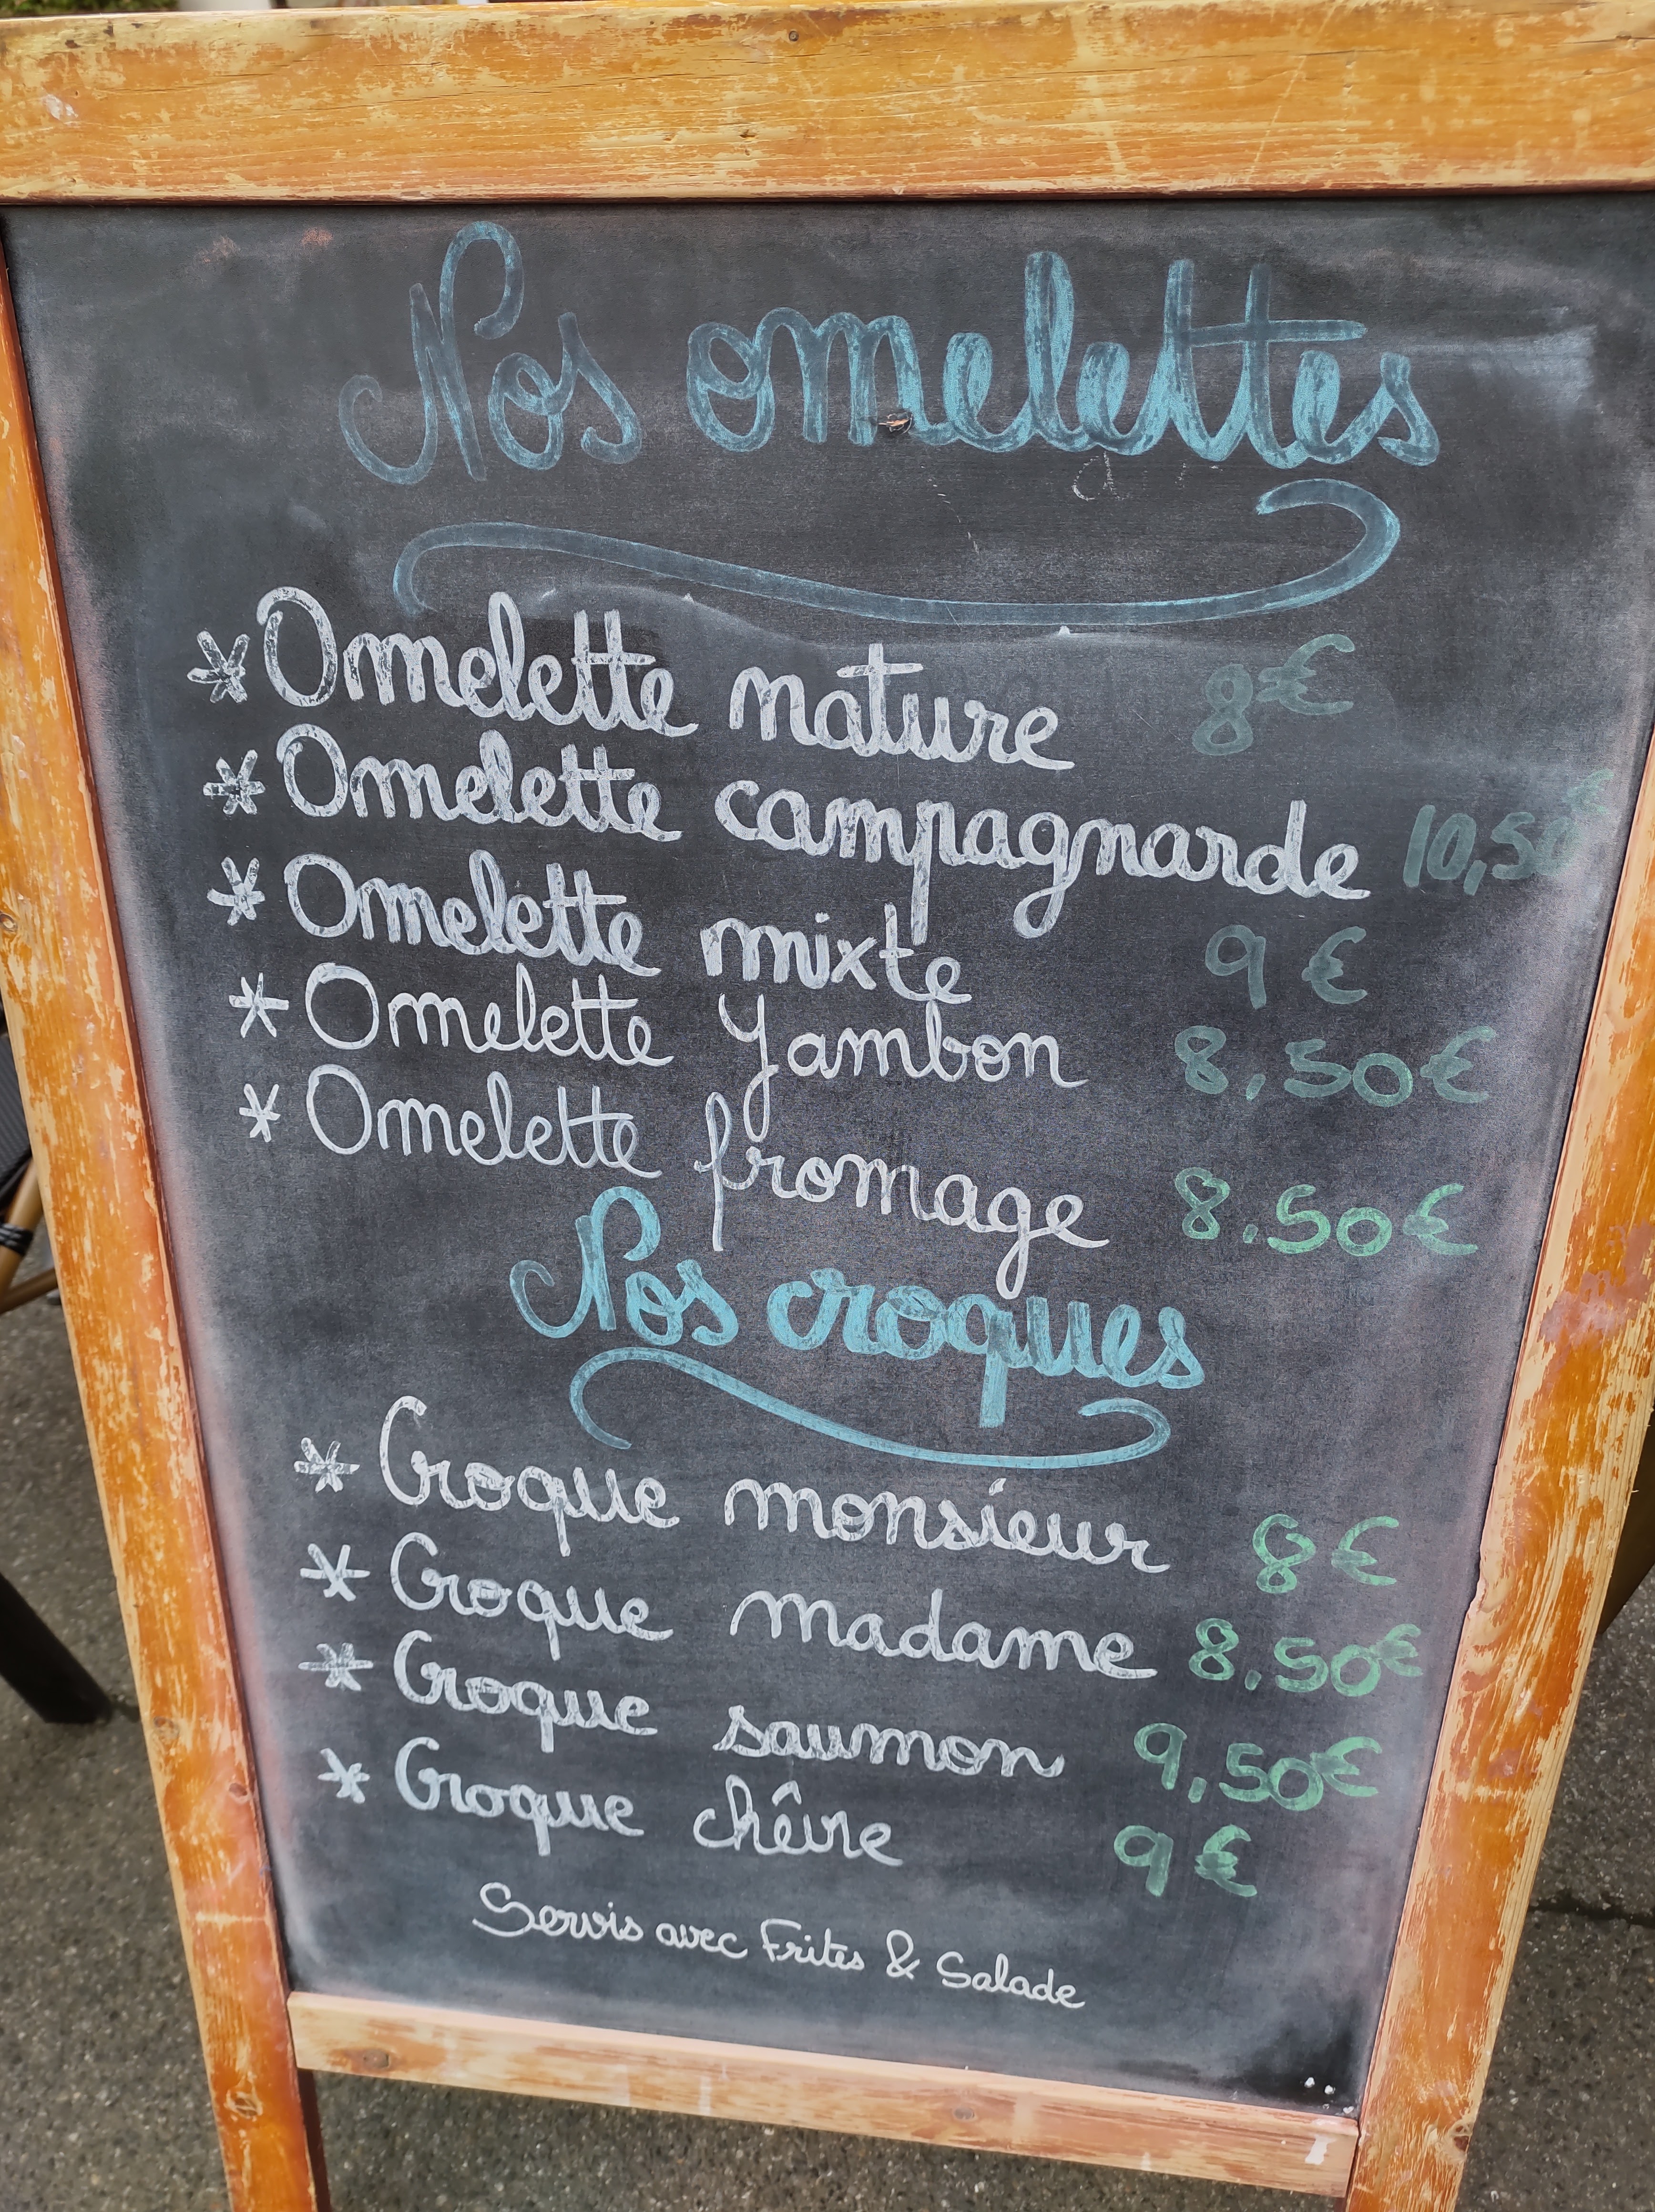 Nos omelettes
* Omelette nature 8€
* Omelette campagnarde 10,50€
* Omelette mixte 9€
* Omelette Jambon 8,50€
* Omelette fromage 8.50€
Nos croques
* Croque monsieur 8€
* Croque madame 8.50€
* Croque saumon 9,50€
* Croque chêvre 9€
Servis avec Frites & Salade